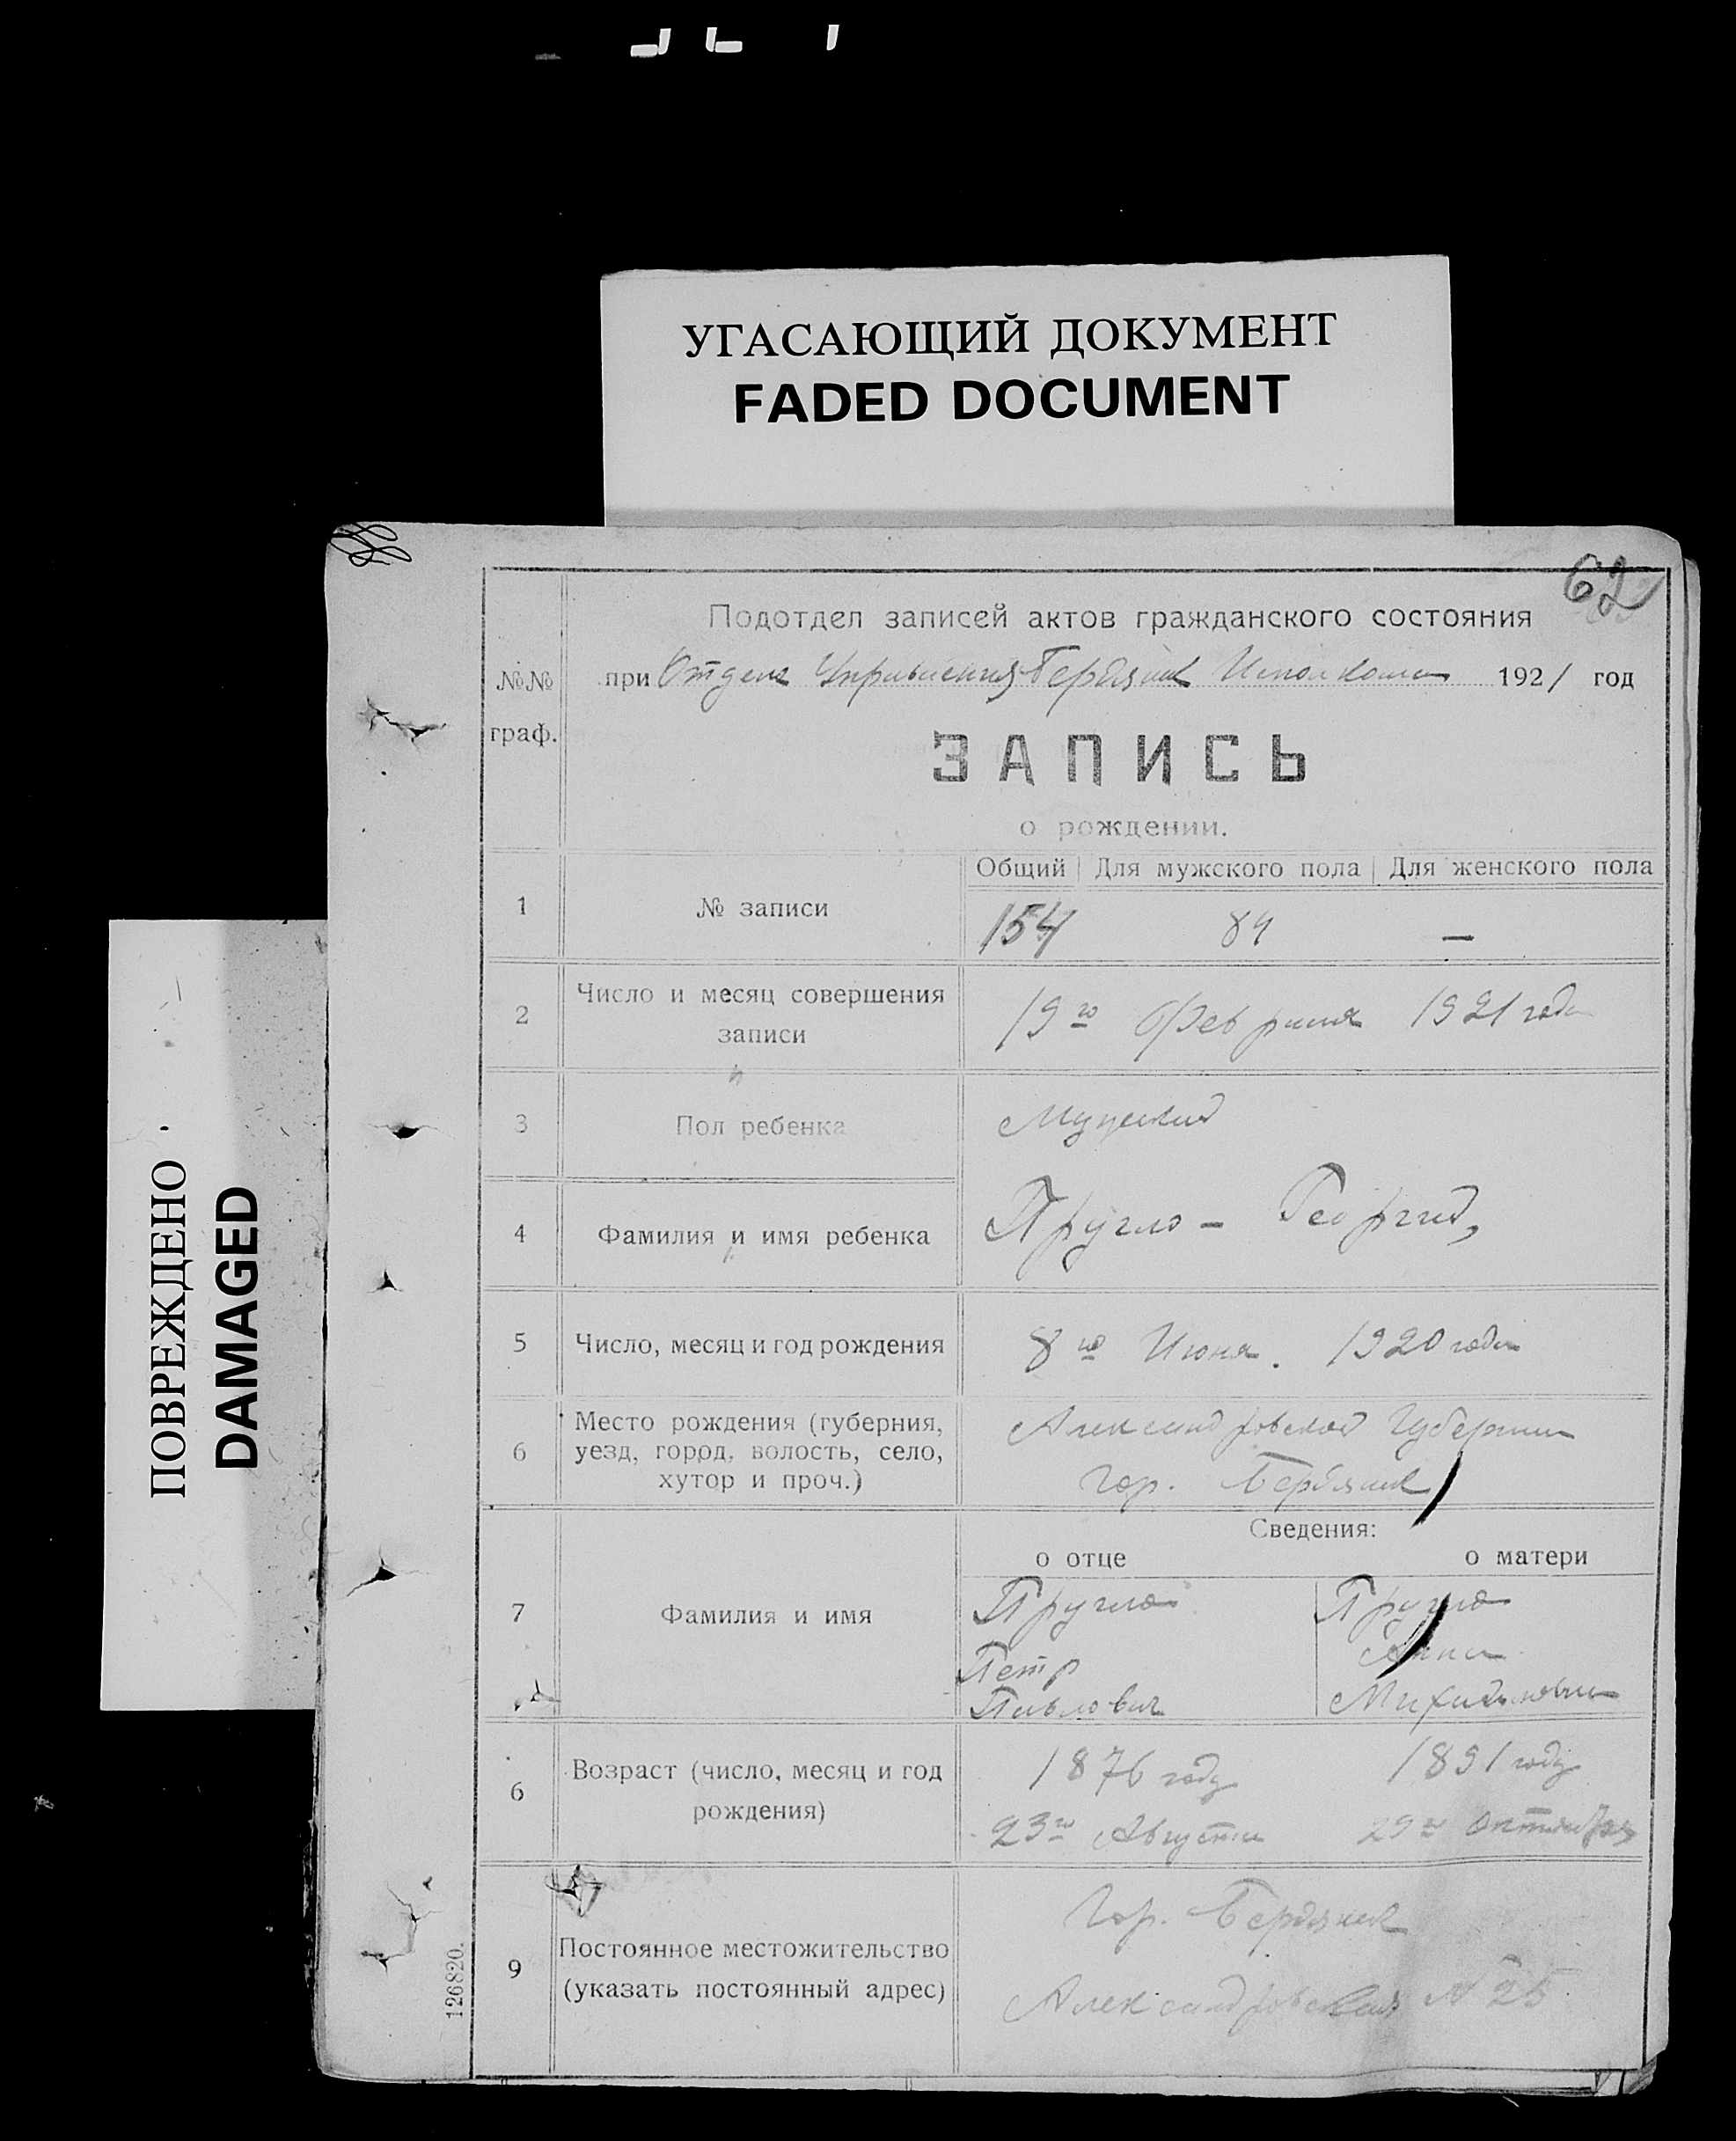 УГАСАЮЩИЙ ДОКУМЕНТ
FADED DOCUMENT
ПОВРЕЖДЕНО
DAMAGED
62
Подотдел записей актов гражданского состояния
№№ граф.
при Отделе Управления Бердянск Исполкома 1921 год
ЗАПИСЬ
о рождении.
Общий Для мужского пола Для женского пола
1 № записи 154 84 —
2 Число и месяц совершения записи 19го Февраля 1921 года
3 Пол ребенка Мужской
4 Фамилия и имя ребенка Пругло - Георгий,
5 Число, месяц и год рождения 8го Июня. 1920 года
6 Место рождения (губерния,
уезд, город, волость, село,
хутор и проч.)
Александровской Губернии
Гор. Бердянск
Сведения:
о отце о матери
7 Фамилия и имя
Пругло Пругло
Петр Анна
Павлович Михайловна
6 Возраст (число, месяц и год
рождения)
1876 году 1891 году
23го Августа 29го Октября
9 Постоянное местожительство
(указать постоянный адрес)
Гор. Бердянск
Александровская № 25
126820.